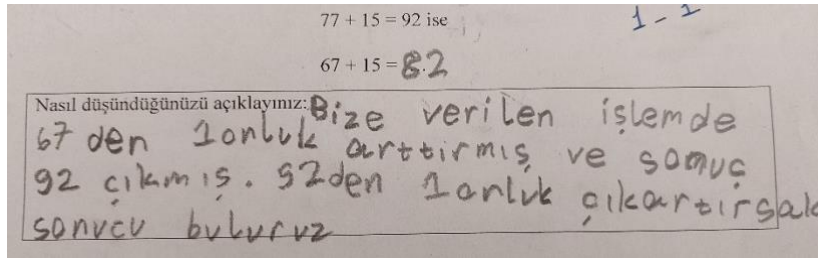 77 + 15 = 92 ise
1-1
67 + 15 = 82
Nasıl düşündüğünüzü açıklayınız: Bize verilen işlemde
67 den 1 onluk arttırmış ve sonuç
92 çıkmış. 92den 1 onluk çıkartırsak
sonucu buluruz